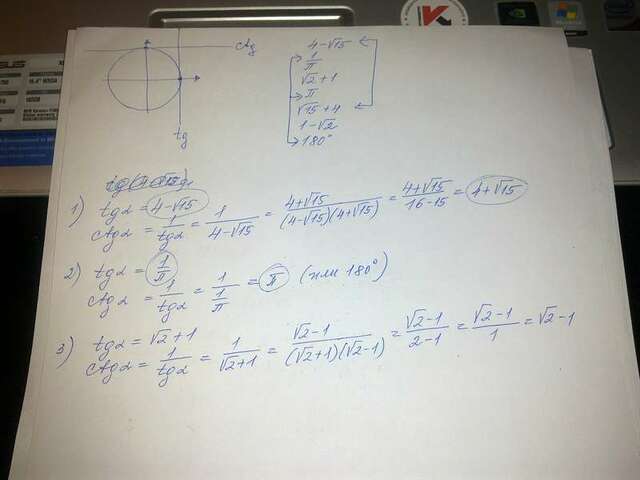 ctg
tg
4-√15
1/π
√2+1
π
√15+4
1-√2
180°
1) tgα = 4-√15
ctgα = 1/tgα = 1/(4-√15) = (4+√15)/((4-√15)(4+√15)) = (4+√15)/(16-15) = 4+√15
2) tgα = 1/π
ctgα = 1/tgα = 1/(1/π) = π (или 180°)
3) tgα = √2+1
ctgα = 1/tgα = 1/(√2+1) = (√2-1)/((√2+1)(√2-1)) = (√2-1)/(2-1) = (√2-1)/1 = √2-1